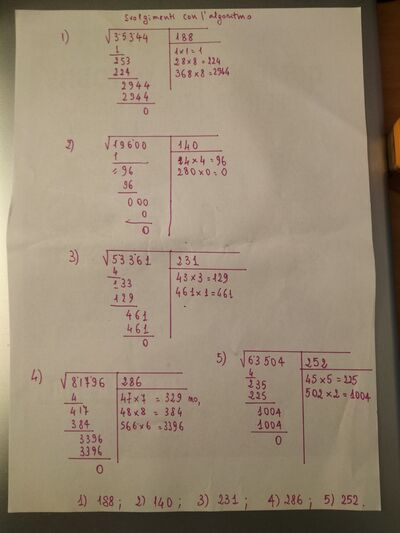 Svolgimenti con l'algoritmo
1) √35344 188
1 1×1=1
253 28×8=224
224 368×8=2944
2944
2944
0
2) √19600 140
1 24×4=96
= 96 280×0=0
96
000
0
0
3) √53361 231
4 43×3=129
133 461×1=461
129
461
461
0
4) √81796 286
4 47×7 = 329 no,
417 48×8 = 384
384 566×6=3396
3396
3396
0
5) √63504 252
4 45×5=225
235 502×2=1004
225
1004
1004
0
1) 188; 2) 140; 3) 231; 4) 286; 5) 252.